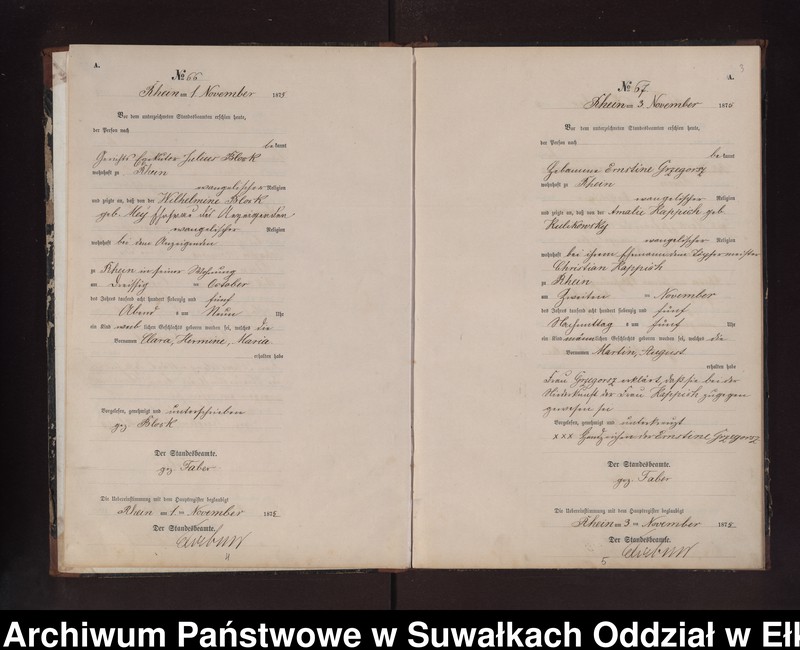 A.
№ 66
Rhein am 1. November 1875
Vor dem unterzeichneten Standesbeamten erschien heute,
der Person nach
bekannt
Gerichts Exekutor Julius Block
wohnhaft zu Rhein
evangelischer Religion
und zeigte an, daß von der Wilhelmine Block
geb. Mey Ehefrau des Anzeigenden
evangelischer Religion
wohnhaft bei dem Anzeigenden
zu Rhein in seiner Wohnung
am Dreissig ten October
des Jahres tausend acht hundert siebenzig und fünf
Abend s um Neun Uhr
ein Kind weib lichen Geschlechts geboren worden sei, welches die
Vornamen Clara, Hermine, Maria
erhalten habe
Vorgelesen, genehmigt und unterschrieben
gez Block
Der Standesbeamte.
gez. Faber
Die Uebereinstimmung mit dem Hauptregister beglaubigt
Rhein am 1. ten November 1875
Der Standesbeamte.
A.
№ 67
Rhein am 3. November 1875
Vor dem unterzeichneten Standesbeamten erschien heute,
der Person nach
bekannt
Hebamme Ernstine Grzegorz
wohnhaft zu Rhein
evangelischer Religion
und zeigte an, daß von der Amalie Kappich geb.
Kulikowsky
evangelischer Religion
wohnhaft bei ihrem Ehemann dem Töpfermeister
Christian Kappich
zu Rhein
am Zweiten ten November
des Jahres tausend acht hundert siebenzig und fünf
Nachmittag s um fünf Uhr
ein Kind männlichen Geschlechts geboren worden sei, welches die
Vornamen Martin, August
erhalten habe
Frau Grzegorz erklärt, daß sie bei der
Niederkunft der Frau Kappich zugegen
gewesen sei
Vorgelesen, genehmigt und unterkreuzt
x x x Handzeichen der Ernstine Grzegorz
Der Standesbeamte.
gez. Faber
Die Uebereinstimmung mit dem Hauptregister beglaubigt
Rhein am 3. ten November 1875
Der Standesbeamte.
5
Archiwum Państwowe w Suwałkach Oddział w Ełk